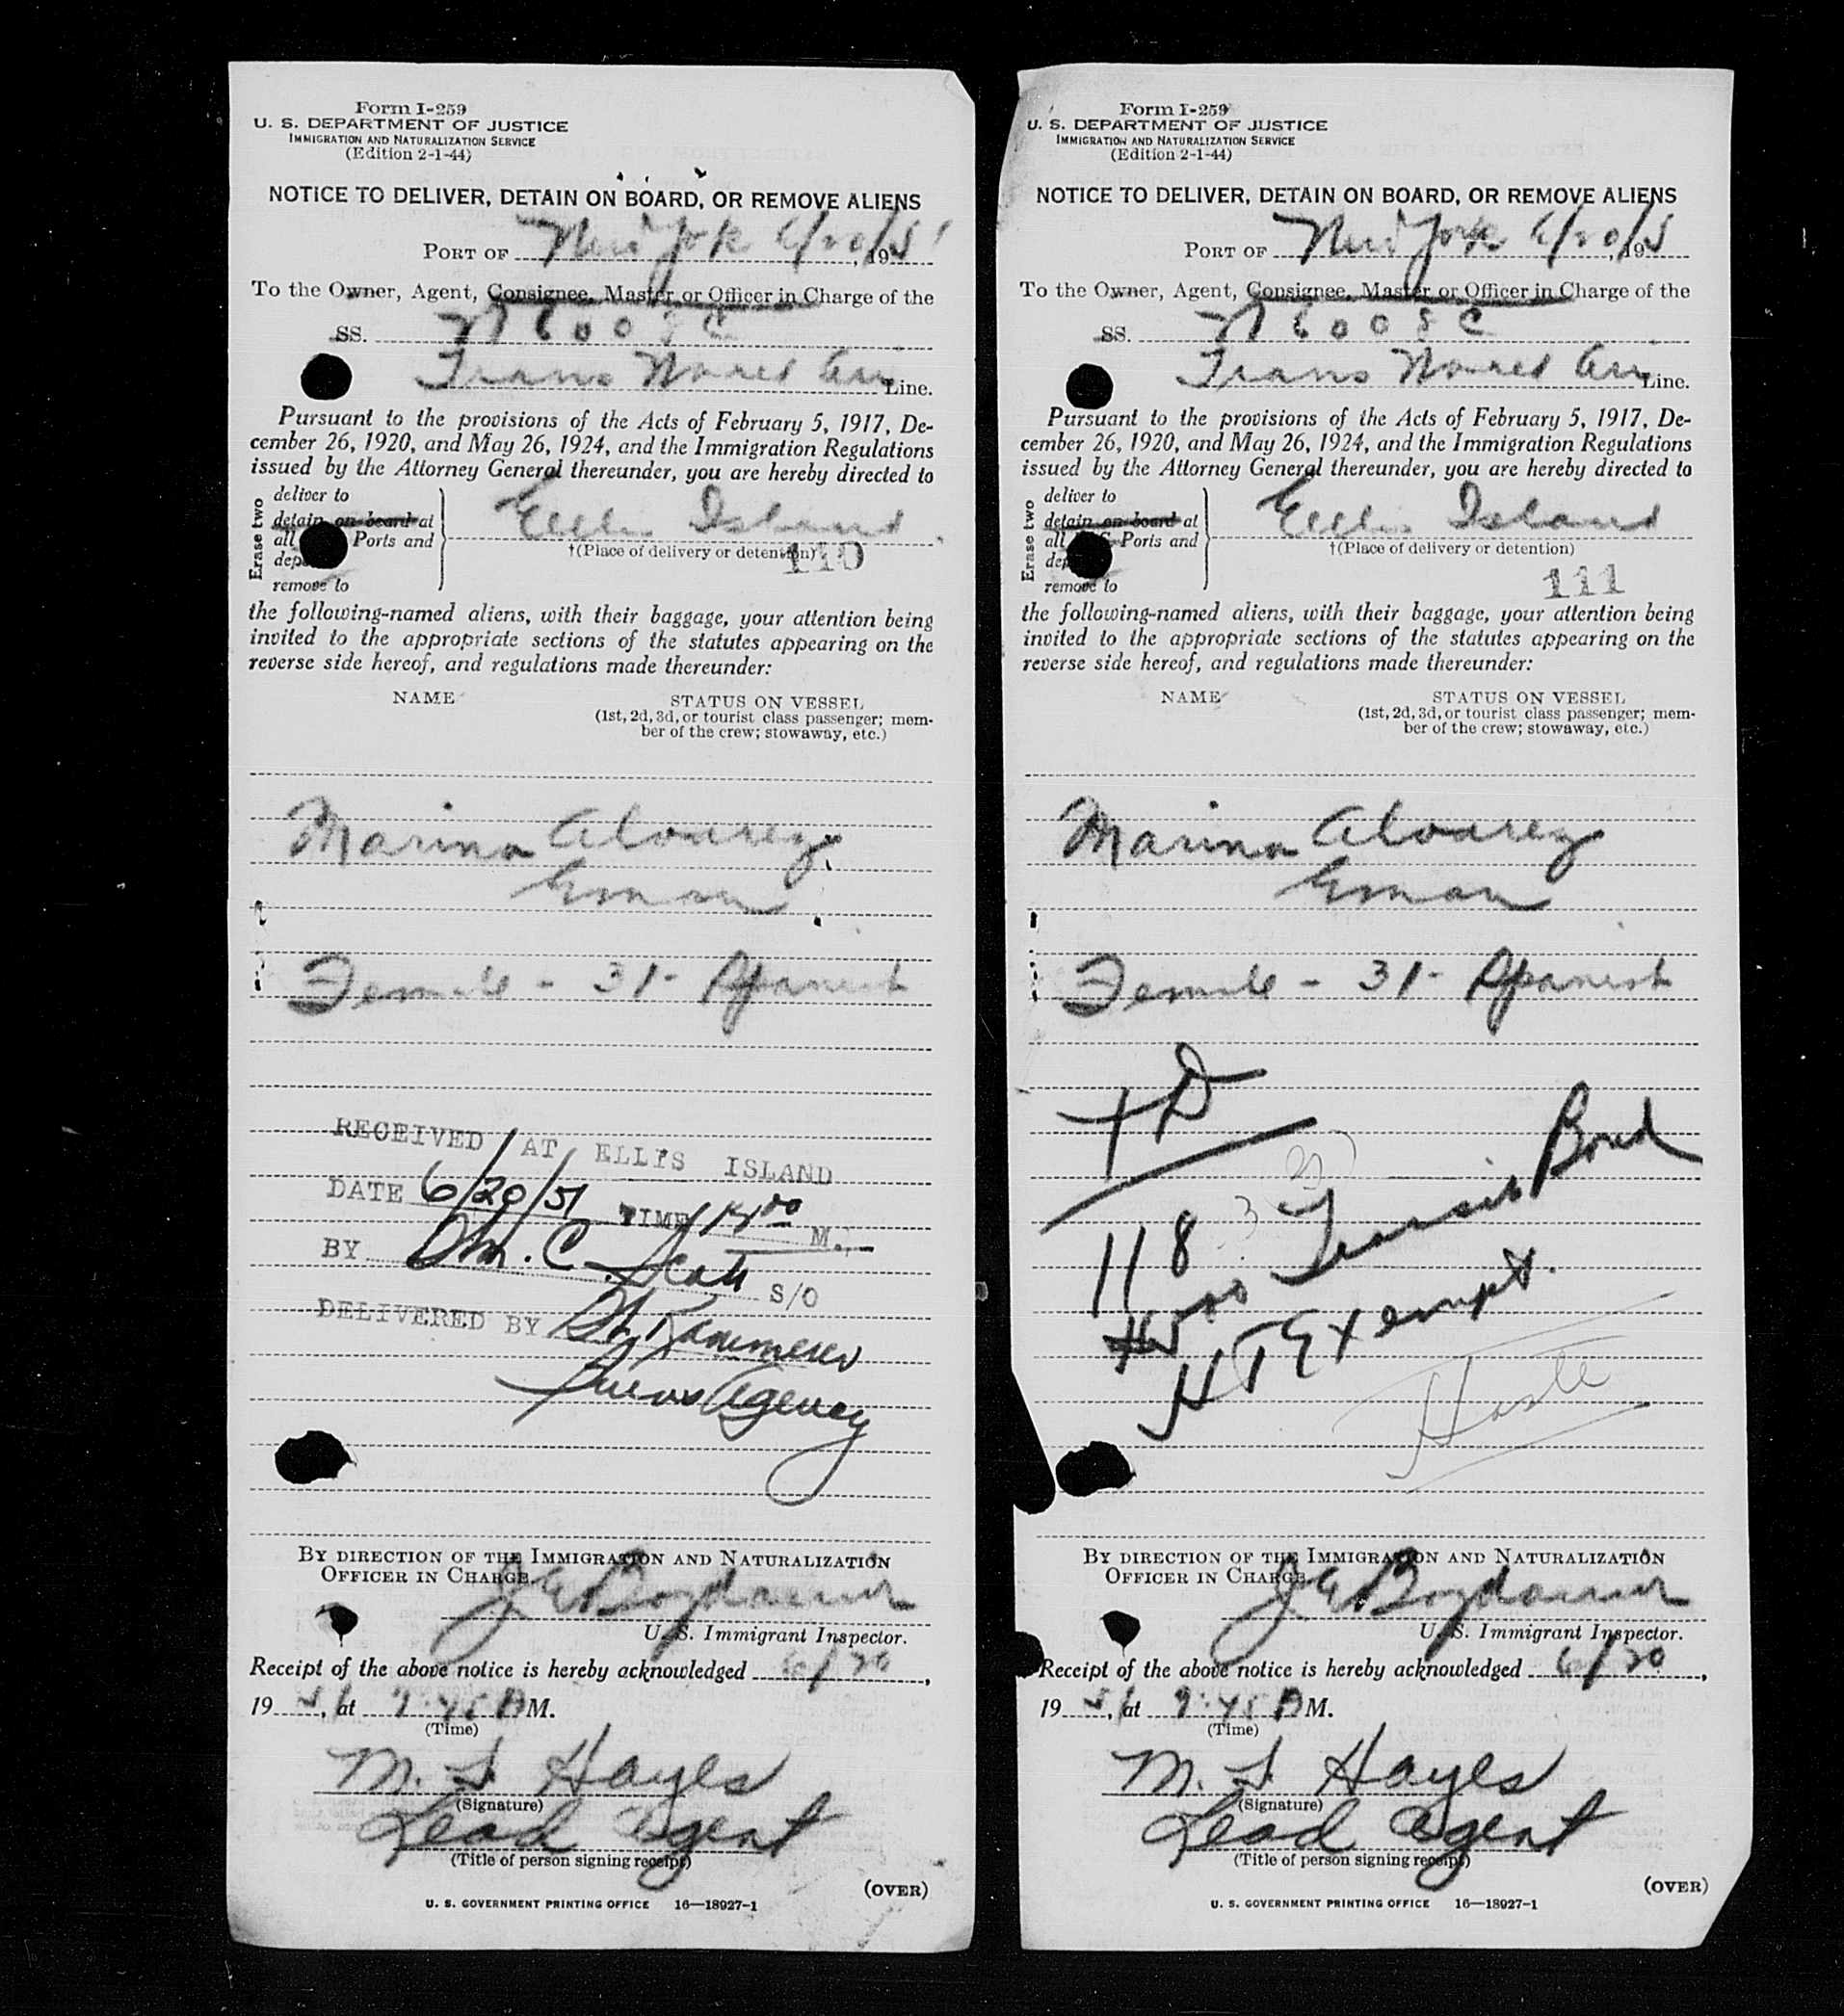 Form I-259
U. S. DEPARTMENT OF JUSTICE
IMMIGRATION AND NATURALIZATION SERVICE
(Edition 2-1-44)
NOTICE TO DELIVER, DETAIN ON BOARD, OR REMOVE ALIENS
PORT OF New York 6/20/51, 19
To the Owner, Agent, Consignee, Master or Officer in Charge of the
SS. N 6008 C
Trans World Air Line.
Pursuant to the provisions of the Acts of February 5, 1917, De-
cember 26, 1920, and May 26, 1924, and the Immigration Regulations
issued by the Attorney General thereunder, you are hereby directed to
Erase two
deliver to
detain on board at
all Ports and
remove to
Ellis Island
†(Place of delivery or detention)
110
the following-named aliens, with their baggage, your attention being
invited to the appropriate sections of the statutes appearing on the
reverse side hereof, and regulations made thereunder:
NAME STATUS ON VESSEL
(1st, 2d, 3d, or tourist class passenger; mem-
ber of the crew; stowaway, etc.)
Marina Alvarez
Female - 31 - Spanish
RECEIVED AT ELLIS ISLAND
DATE 6/20/51 TIME M.
BY Wm. C. Scott S/O
DELIVERED BY
Agency
BY DIRECTION OF THE IMMIGRATION AND NATURALIZATION
OFFICER IN CHARGE
U. S. Immigrant Inspector.
Receipt of the above notice is hereby acknowledged 6/20,
19 51, at 9:45 A M.
(Time)
Hayes
(Signature)
Lead Agent
(Title of person signing receipt)
(OVER)
U. S. GOVERNMENT PRINTING OFFICE 16—18927-1
Form I-259
U. S. DEPARTMENT OF JUSTICE
IMMIGRATION AND NATURALIZATION SERVICE
(Edition 2-1-44)
NOTICE TO DELIVER, DETAIN ON BOARD, OR REMOVE ALIENS
PORT OF New York 6/20/5, 19
To the Owner, Agent, Consignee, Master or Officer in Charge of the
SS. N 6008 C
Trans World Air Line.
Pursuant to the provisions of the Acts of February 5, 1917, De-
cember 26, 1920, and May 26, 1924, and the Immigration Regulations
issued by the Attorney General thereunder, you are hereby directed to
Erase two
deliver to
detain on board at
all Ports and
remove to
Ellis Island
†(Place of delivery or detention)
111
the following-named aliens, with their baggage, your attention being
invited to the appropriate sections of the statutes appearing on the
reverse side hereof, and regulations made thereunder:
NAME STATUS ON VESSEL
(1st, 2d, 3d, or tourist class passenger; mem-
ber of the crew; stowaway, etc.)
Marina Alvarez
Female - 31 - Spanish
TD
118
Transit Bond
HT Exempt.
BY DIRECTION OF THE IMMIGRATION AND NATURALIZATION
OFFICER IN CHARGE
U. S. Immigrant Inspector.
Receipt of the above notice is hereby acknowledged 6/20,
19 51, at 9:45 A M.
(Time)
Hayes
(Signature)
Lead Agent
(Title of person signing receipt)
(OVER)
U. S. GOVERNMENT PRINTING OFFICE 16—18927-1